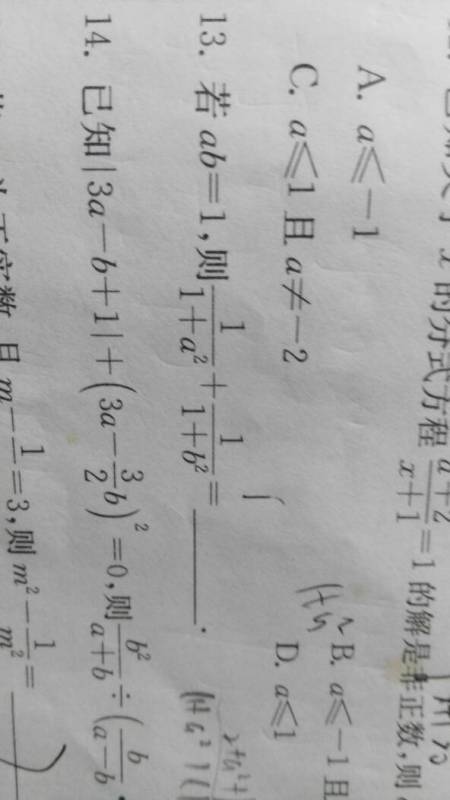 x 的分式方程 \frac{a+2}{x+1}=1 的解是非正数,则
A. a⩽-1 B. a⩽-1 且
C. a⩽1 且 a≠-2 D. a⩽1
13. 若 ab=1,则 \frac{1}{1+a^2}+\frac{1}{1+b^2}=______.
14. 已知|3a-b+1|+(3a-\frac{3}{2}b)^2=0,则\frac{b^2}{a+b}÷(\frac{b}{a-b}
实数,且 m-\frac{1}{m}=3,则 m^2-\frac{1}{m^2}=______